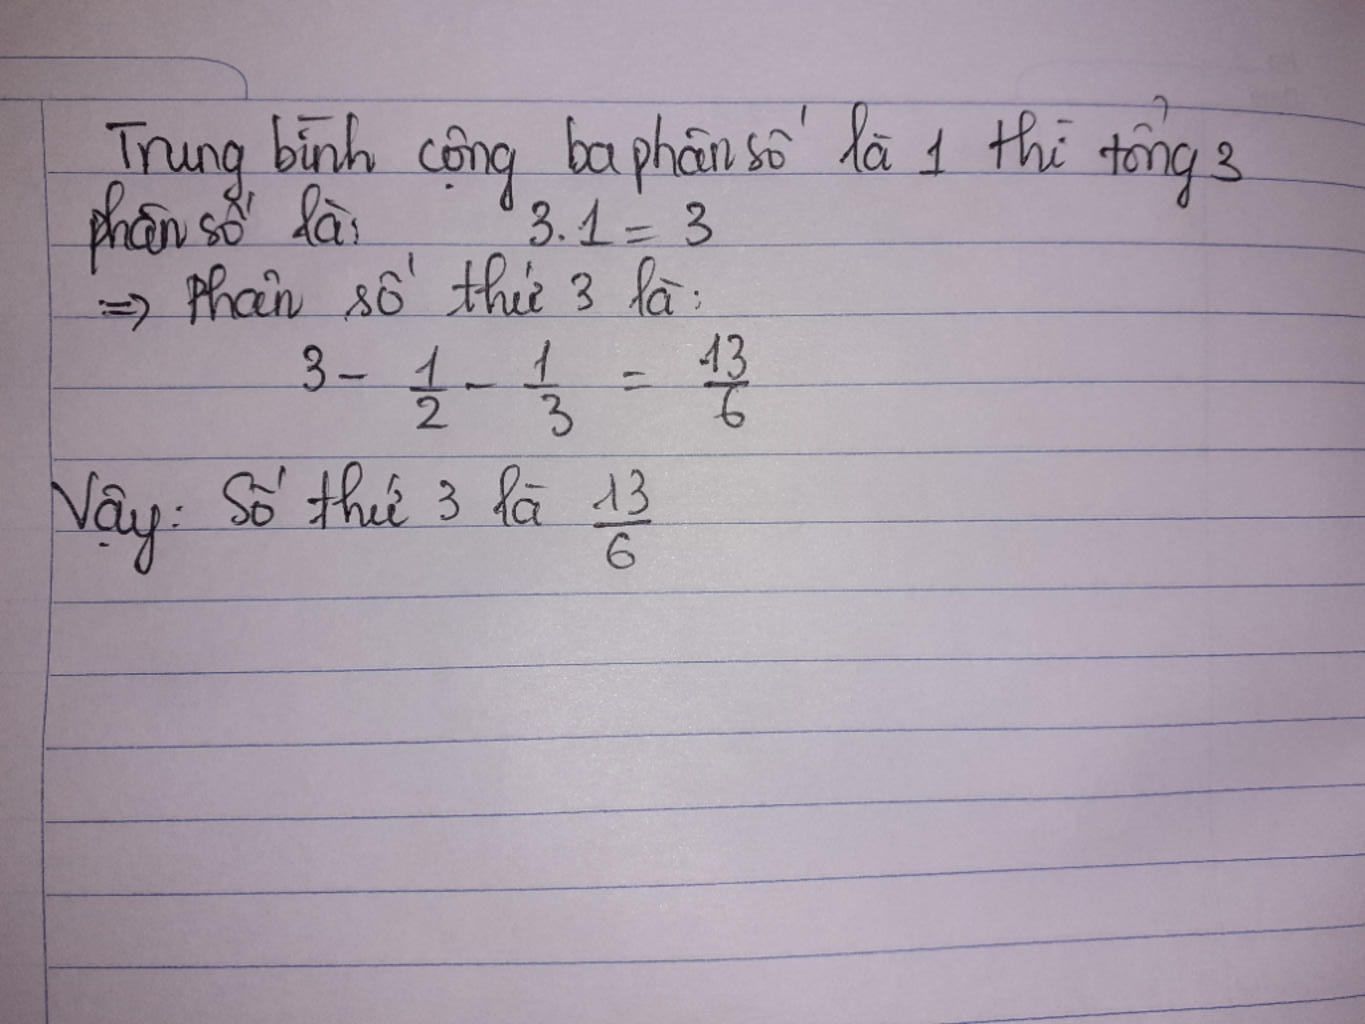 Trung bình cộng ba phân số là 1 thì tổng 3
phân số là: 3.1 = 3
=> Phân số thứ 3 là:
3 - 1/2 - 1/3 = 13/6
Vậy: Số thứ 3 là 13/6